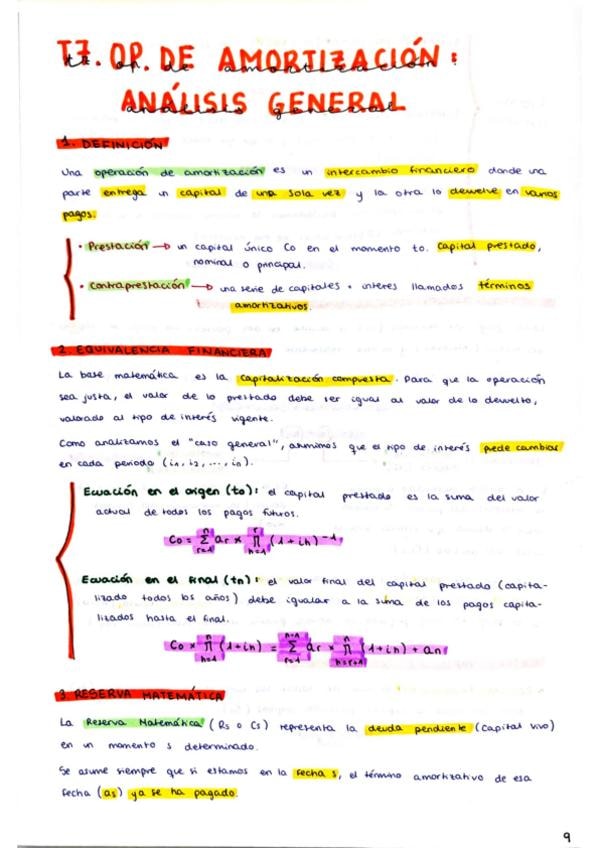 T7. OP. DE AMORTIZACIÓN:
ANÁLISIS GENERAL
1. DEFINICIÓN
Una operación de amortización es un intercambio financiero donde una
parte entrega un capital de una sola vez y la otra lo devuelve en varios
pagos.
· Prestación → un capital único Co en el momento to. Capital prestado,
nominal o principal.
· Contraprestación → una serie de capitales + interes llamados términos
amortizativos.
2. EQUIVALENCIA FINANCIERA
La base matemática es la capitalización compuesta. Para que la operación
sea justa, el valor de lo prestado debe ser igual al valor de lo devuelto,
valorado al tipo de interés vigente.
Como analizamos el "caso general", asumimos que el tipo de interés puede cambiar
en cada periodo (i1, i2, ..., in).
Ecuación en el origen (to): el capital prestado es la suma del valor
actual de todos los pagos futuros.
Co = Σ(r=1, n) ar × Π(h=1, r) (1+ih)⁻¹
Ecuación en el final (tn): el valor final del capital prestado (capita-
lizado todos los años) debe igualar a la suma de los pagos capita-
lizados hasta el final.
Co × Π(h=1, n) (1+ih) = Σ(r=1, n-1) ar × Π(h=r+1, n) (1+ih) + an
3. RESERVA MATEMÁTICA
La Reserva Matemática (Rs o Cs) representa la deuda pendiente (Capital vivo)
en un momento s determinado.
Se asume siempre que si estamos en la fecha s, el término amortizativo de esa
fecha (as) ya se ha pagado.
9